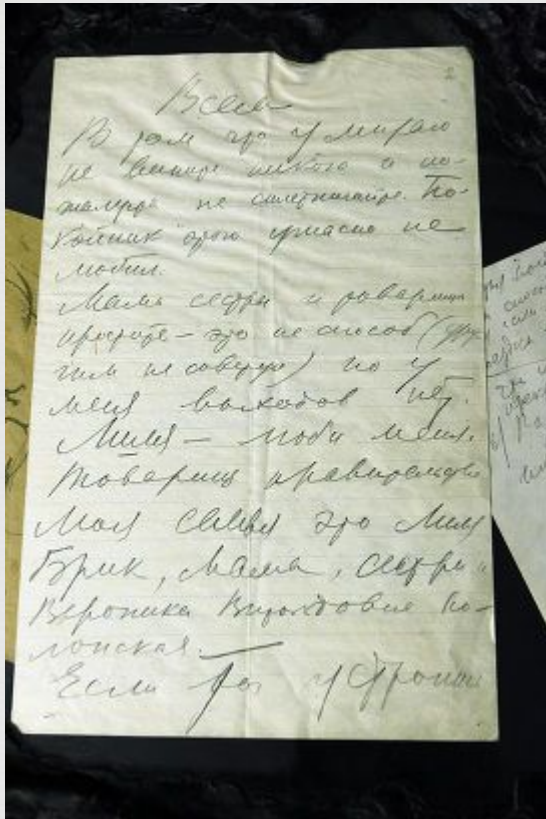 Всем
В том что умираю
не вините никого и по-
жалуйста не сплетничайте. По-
койник этого ужасно не
любил.
Мама сестры и товарищи
простите – это не способ (дру
гим не советую) но у
меня выходов нет.
Лиля – люби меня.
Товарищ правительство
моя семья это Лиля
Брик, мама, сестры и
Вероника Витольдовна По-
лонская. –
Если ты устроишь